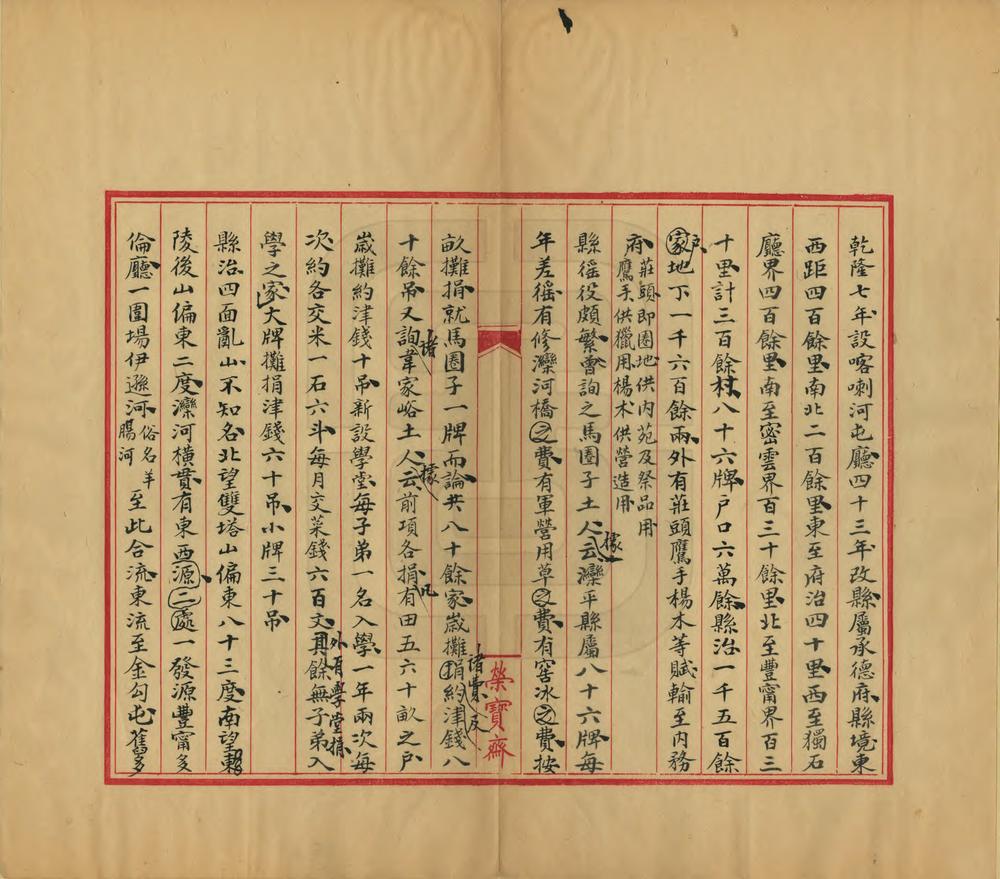 乾隆七年設喀喇河屯廳四十三年改縣屬承德府縣境東
西距四百餘里南北二百餘里東至府治四十里西至獨石
廳界四百餘里南至密雲界百三十餘里北至豐甯界百三
十里計三百餘村八十六牌戶口六萬餘縣治一千五百餘
家戶地丁一千六百餘兩外有莊頭鷹手楊木等賦輸至內務
府莊頭即圈地供內苑及祭品用
鷹手供獵用楊木供營造用
縣徭役頗繁會詢之馬圈子土人云據灤平縣屬八十六牌每
年差徭有修灤河橋之費有軍營用草之費有窖冰之費按
榮寶齋
畝攤捐就馬圈子一牌而論共八十餘家歲攤捐諸費及約津錢八
十餘吊又詢諸韋家峪土人云據前項各捐凡有田五六十畝之戶
歲攤約津錢十吊新設學堂每子弟一名入學一年兩次每
次約各交米一石六斗每月交菜錢六百文外有學堂捐其餘無子弟入
學之家大牌攤捐津錢六十吊小牌三十吊
縣治四面亂山不知名北望雙塔山偏東八十三度南望
陵後山偏東二度灤河橫貫有東西源二處一發源豐甯多
倫廳一圍場伊遜河俗名羊腸河至此合流東流至金勾屯舊多